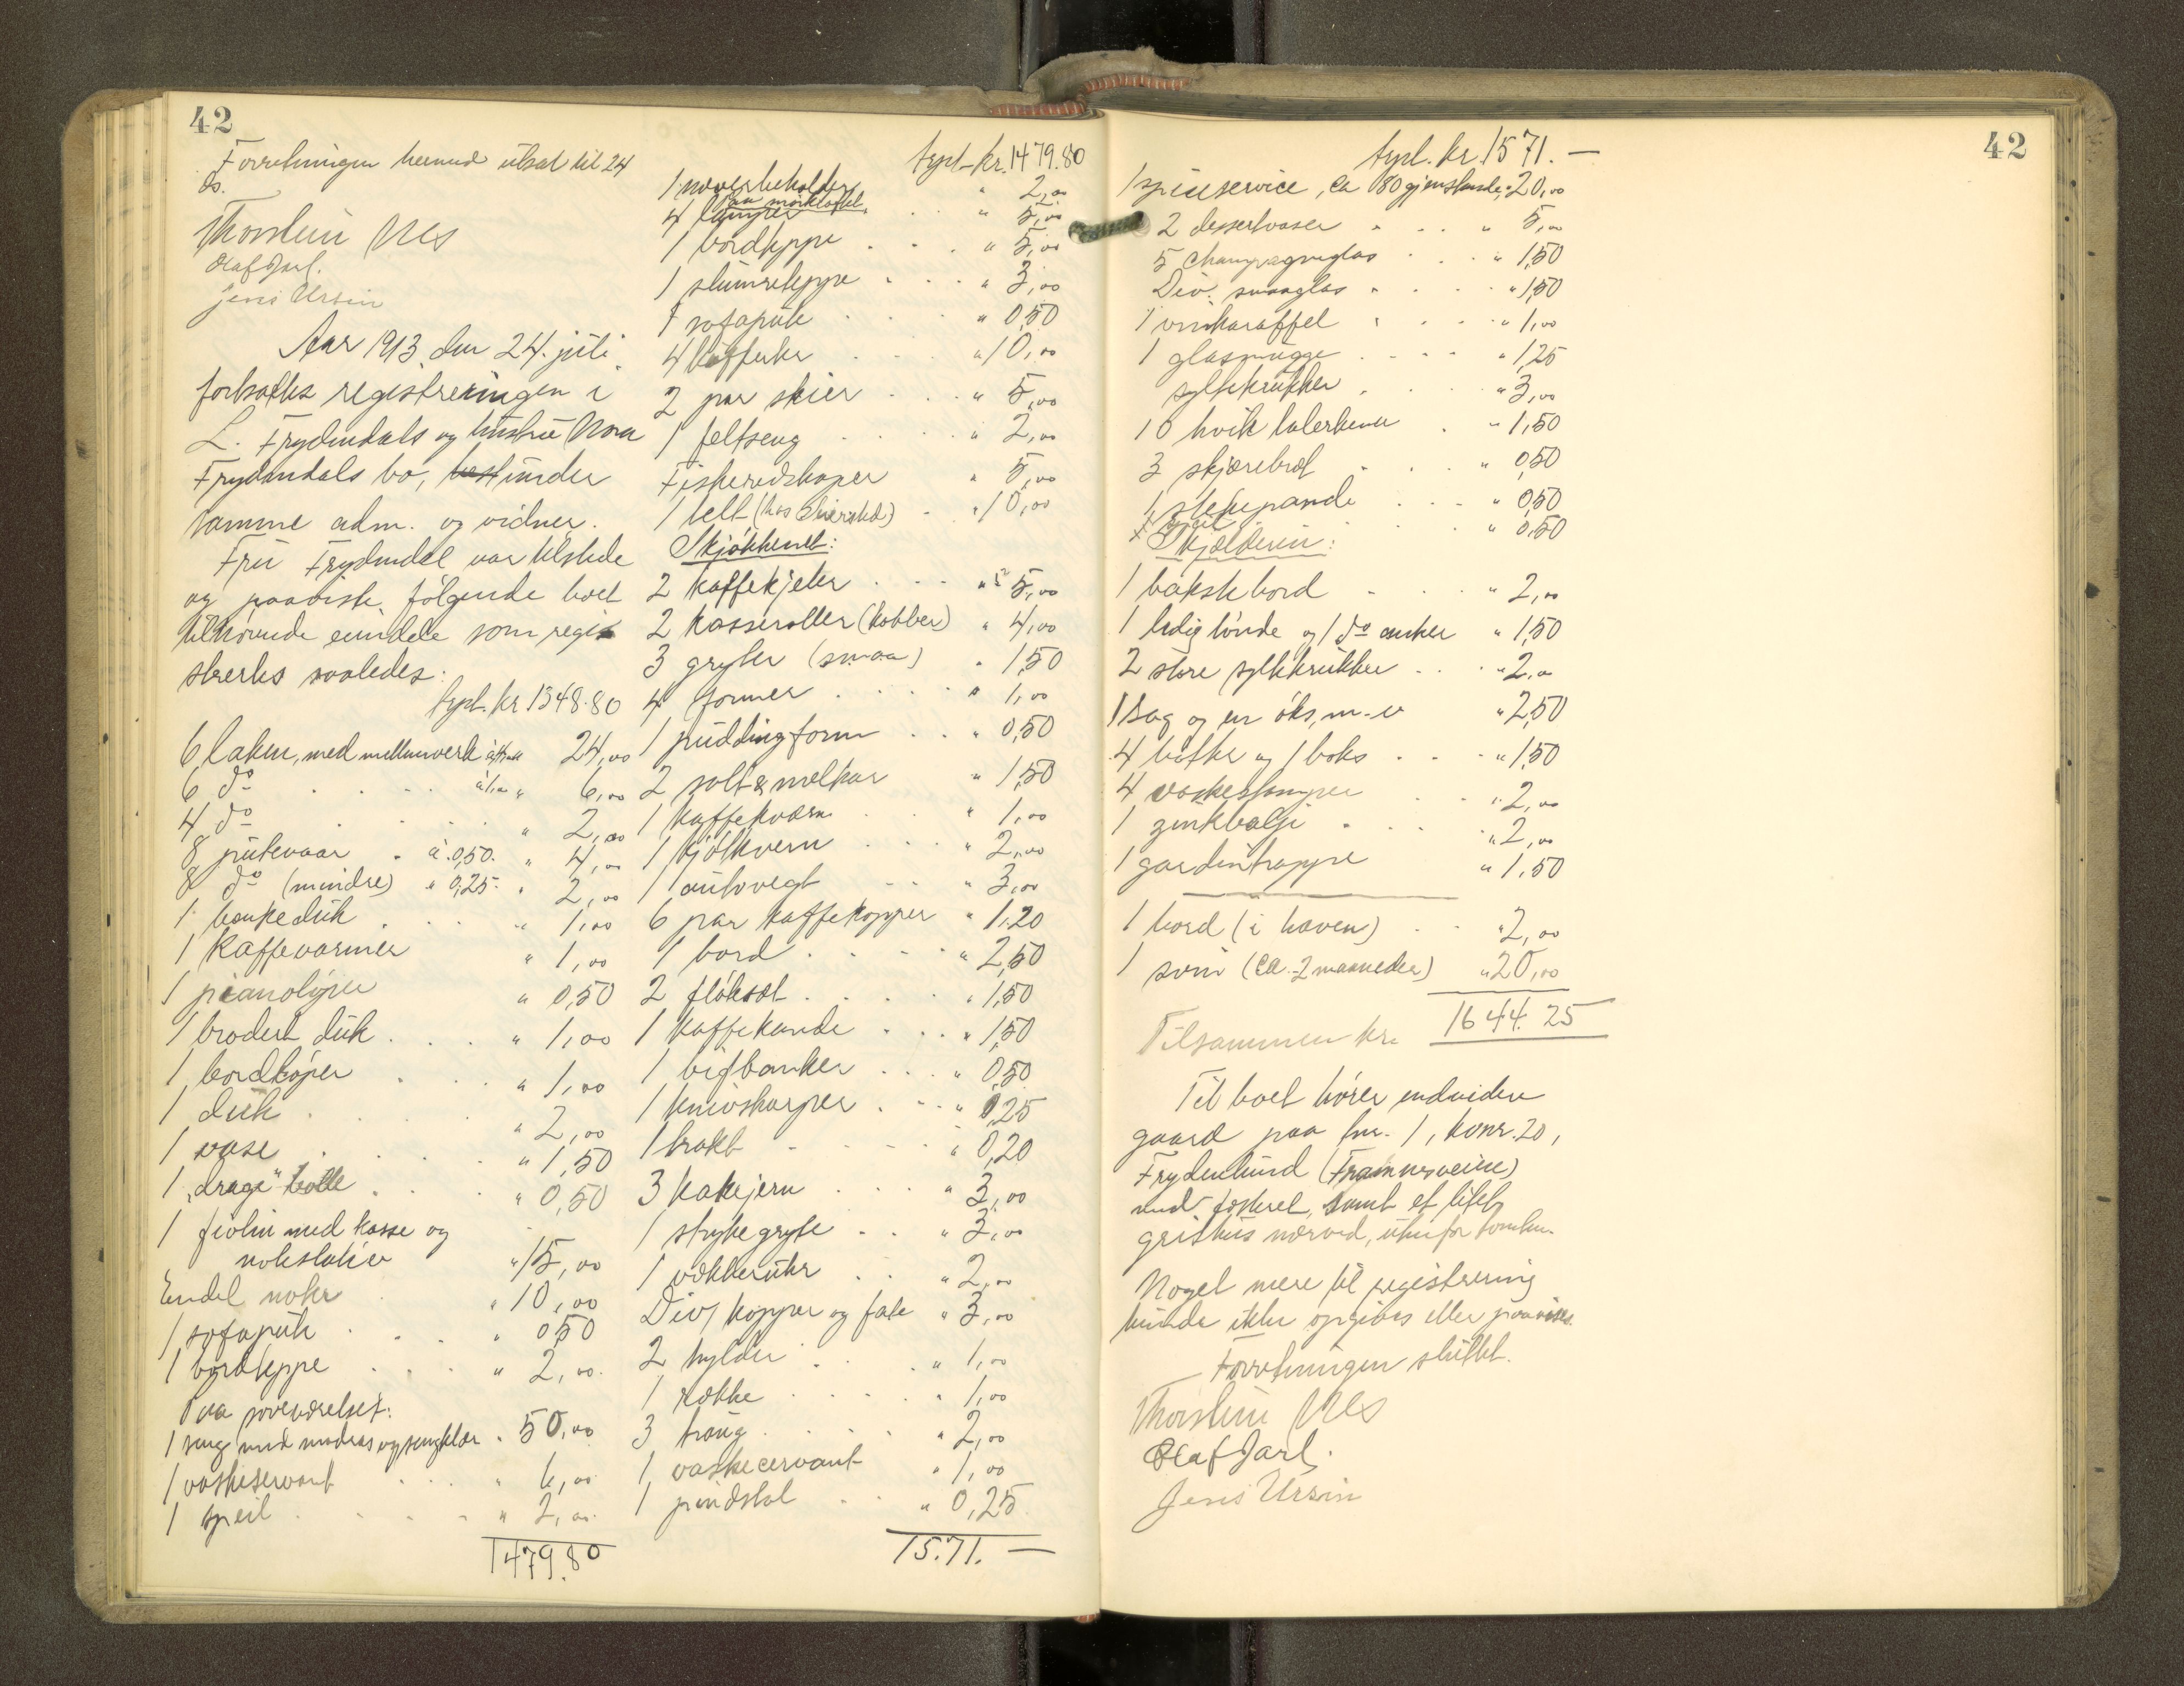 42
Forretningen hermed utsat til 24
ds.
Thorstein Næs
Olaf Jarl.
Jens Ursin
Aar 1913 den 24. juli
fortsattes registreringen i
L. Frydendals og hustru Nora
Frydendals bo, under
samme adm. og vidner.
Fru Frydendal var tilstede
og paaviste følgende boet
tilhørende eiendele som regi-
strertes saaledes:
trpt. kr 1348.80
6 laken, med mellemverk 24,00
6 do . . . . à 1,00 " 6,00
4 do . . . . " 2,00
8 putevaar . à 0,50. " 4,00
8 do (mindre) " 0,25. " 2,00
1 bankeduk . . . " 1,00
1 Kaffevarmer " 1,00
1 pianoløper " 0,50
1 brodert duk . . . " 1,00
1 bordløper . . . " 1,00
1 duk . . . . " 2,00
1 vase . . . . " 1,50
1 "drage" bolle . . . " 0,50
1 fiolin med kasse og
notestativ " 15,00
Endel noter . " 10,00
1 sofapute . . . " 0,50
1 bordteppe . . . " 2,00.
Paa soveværelset:
1 seng med madras og sengklær " 50,00
1 vaskeservant . . . " 6,00
1 speil . . . . " 2,00.
1479.80
trpt kr. 1479.80
" 2,00
paa mørkloftet
4 lamper . . . " 5,00
1 bordteppe . . . " 5,00
1 slumreteppe . . . " 3,00
1 sofapute . . . " 0,50
4 kufferter . . . " 10,00
2 par skier . . . " 5,00
1 feltseng . . . . " 2,00
Fiskeredskaper " 5,00
1 telt (hos ) . " 10,00
Kjøkkenet:
2 kaffekjeler . . . " 5,00
2 kasseroller (kobber) " 4,00
3 gryter (smaa) " 1,50
4 former . . . . " 1,00
1 puddingform . . " 0,50
2 salt & melkar " 1,50
1 kaffekværn . . . " 1,00
1 kjøtkvern . . . " 2,00
1 autovegt . . . " 3,00
6 par kaffekopper " 1,20
1 bord . . . . " 2,50
2 . . . . " 1,50
1 kaffekande . . . " 1,50
1 bifbanker . . . " 0,50
1 knivskarper . . . " 0,25
1 brakt . . . . " 0,20
3 kakejern . . . " 3,00
1 strykegryte . . " 3,00
1 vækkeruhr . . " 2,00
Div kopper og fate " 3,00
2 hylder . . . " 1,00
1 række . . . . " 1,00
3 traug . . . . " 2,00
1 vaskecervant " 1,00
1 pindstol . . " 0,25
1571. —
42
trpt. kr. 1571. —
1 spiseservice, ca 80 gjenstande " 20,00
2 dessertvaser . . . " 5,00
5 Champagneglas . . . " 1,50
Div. smaaglas . . . " 1,50
1 vinkaraffel . . . " 1,00
1 glasmugge . . . " 1,25
syltekrukker . . " 3,00
10 hvite talerkener . " 1,50
3 skjærebræt . . . " 0,50
1 stekepande . . . " 0,50
" 0,50
I kjælderen:
1 bakstebord . . . " 2,00
1 ledig tønde og 1 do anker " 1,50
2 store syltekrukker . . " 2,00
1 sag og en øks, m. v " 2,50
4 bøtter og 1 boks . . " 1,50
4 vaskestamper . . " 2,00
1 zinkbalje . . . " 2,00
1 gardintrappe " 1,50
1 bord (i haven) . . " 2,00
1 svin (ca. 2 maaneder) " 20,00
Tilsammen kr. 1644.25
Til boet hører endvidere
gaard paa bnr. 1, konr. 20,
Frydenlund (Framnesveien)
med fæsteret, samt et litet
grishus nærved, utenfor tomten.
Noget mere til registrering
kunde ikke opgives eller paavises.
Forretningen sluttet.
Thorstein Næs
Olaf Jarl.
Jens Ursin